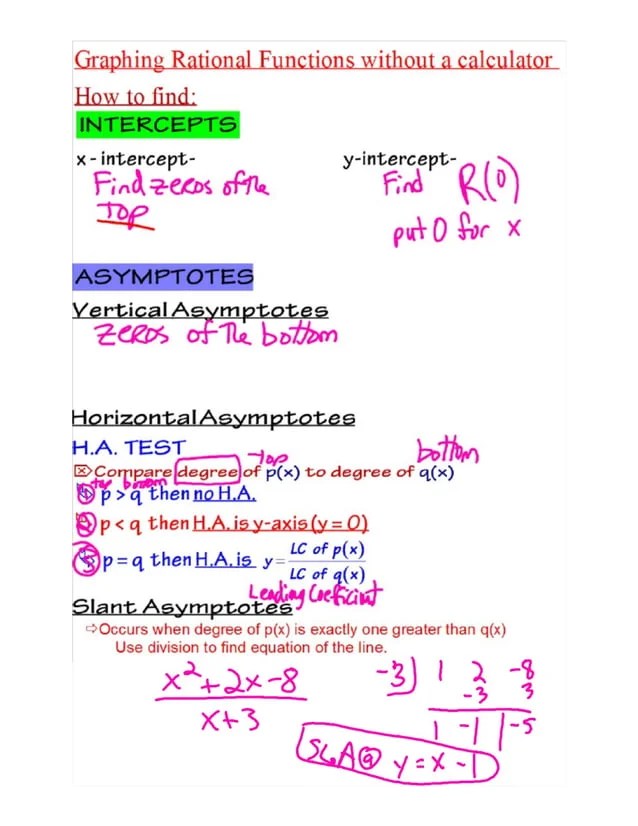 Graphing Rational Functions without a calculator
How to find:
INTERCEPTS
x - intercept-
Find zeros of the
TOP
y-intercept-
Find R(0)
put 0 for x
ASYMPTOTES
Vertical Asymptotes
zeros of The bottom
Horizontal Asymptotes
H.A. TEST
top bottom
Compare degree of p(x) to degree of q(x)
top bottom
1 p > q then no H.A.
2 p < q then H.A. is y-axis (y = 0)
3 p = q then H.A. is y = LC of p(x) / LC of q(x)
Leading Coefficient
Slant Asymptotes
⇨Occurs when degree of p(x) is exactly one greater than q(x)
Use division to find equation of the line.
x² + 2x - 8
x + 3
-3 1 2 -8
-3 3
1 -1 -5
y = x - 1